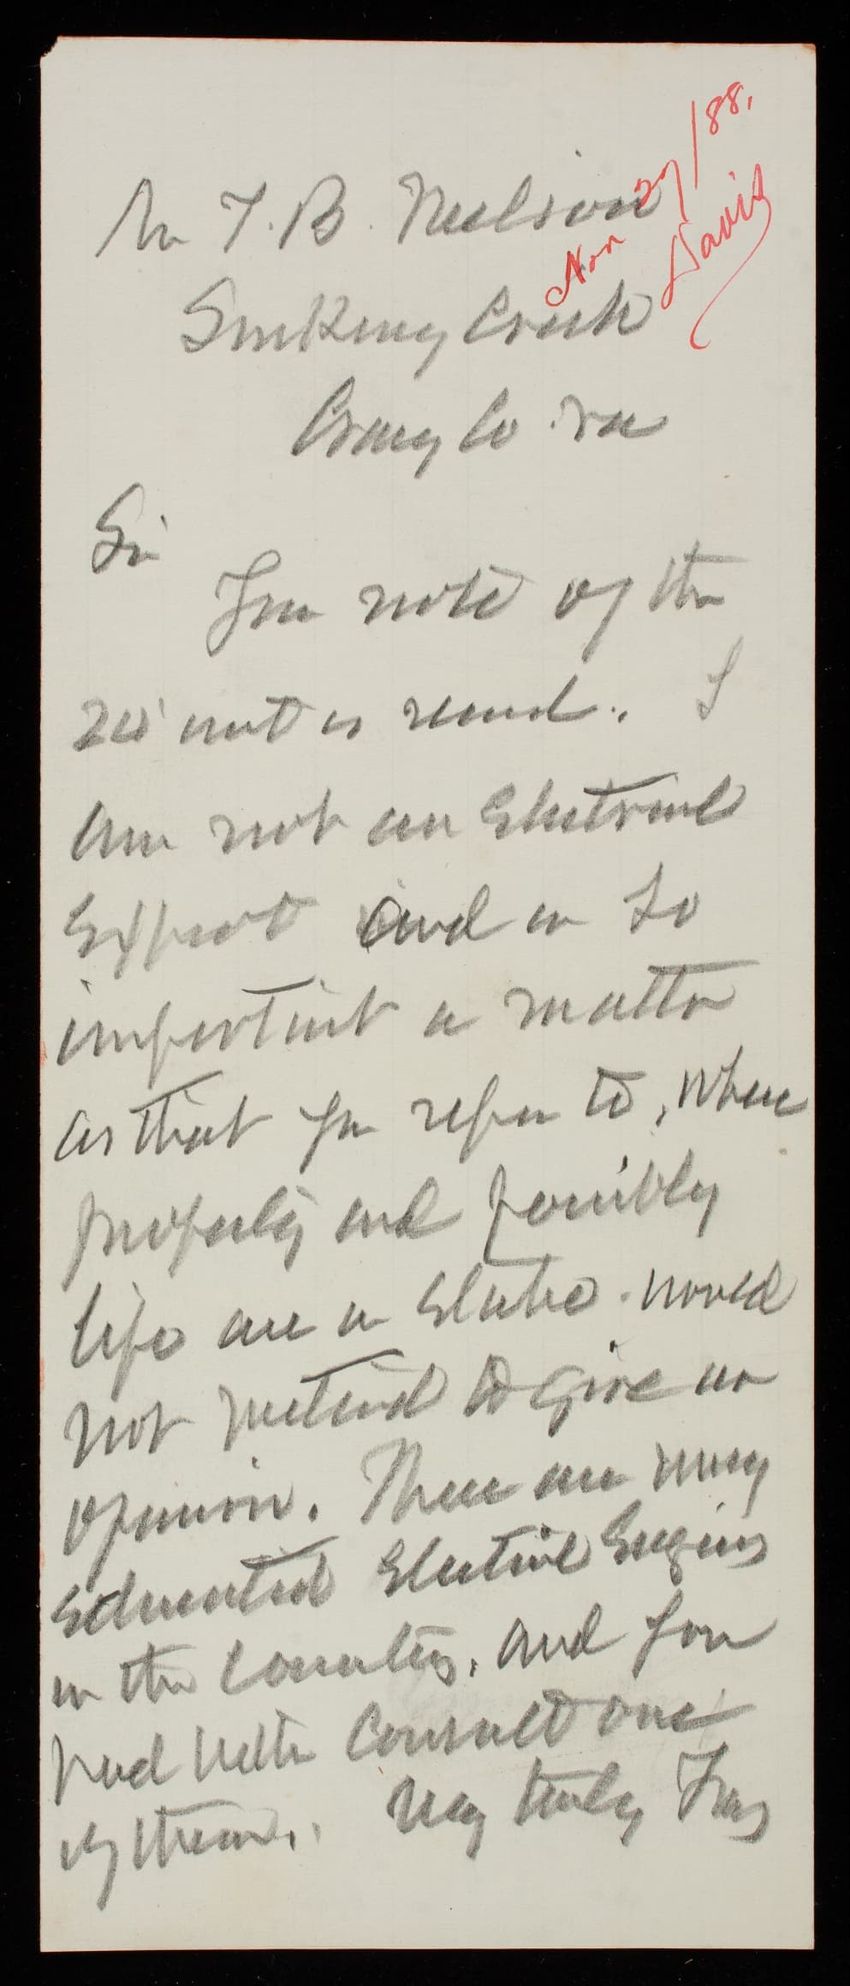 Nov 27/88.
Davis
Mr T. B. Neelson
Sinking Creek
Craig Co. Va
Sir
Your note of the
24 inst is received. I
am not an Electrical
Expert and in so
important a matter
as that you refer to, where
property and possibly
life are at Stake. would
not pretend to give an
opinion. There are many
Educated Electrical Engins
in the Country, and you
had better Consult one
of them. Very truly Yours